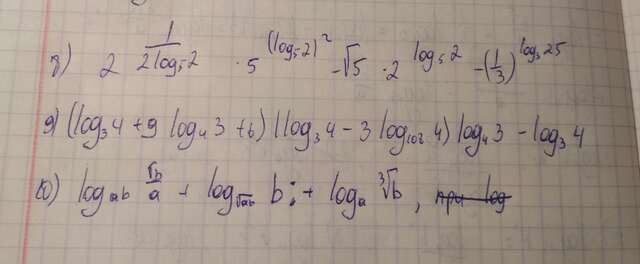 8) 2^{\frac{1}{2\log_5 2}} · 5^{(\log_5 2)^2} - √5 · 2^{\log_5 2} - (\frac{1}{3})^{\log_3 25}
9) (log₃4 + 9 log₄3 + 6)(log₃4 - 3 log₁₀₈4) log₄3 - log₃4
10) log_{ab} \frac{√b}{a} + log_{√ab} b ; + log_a ∛b ,